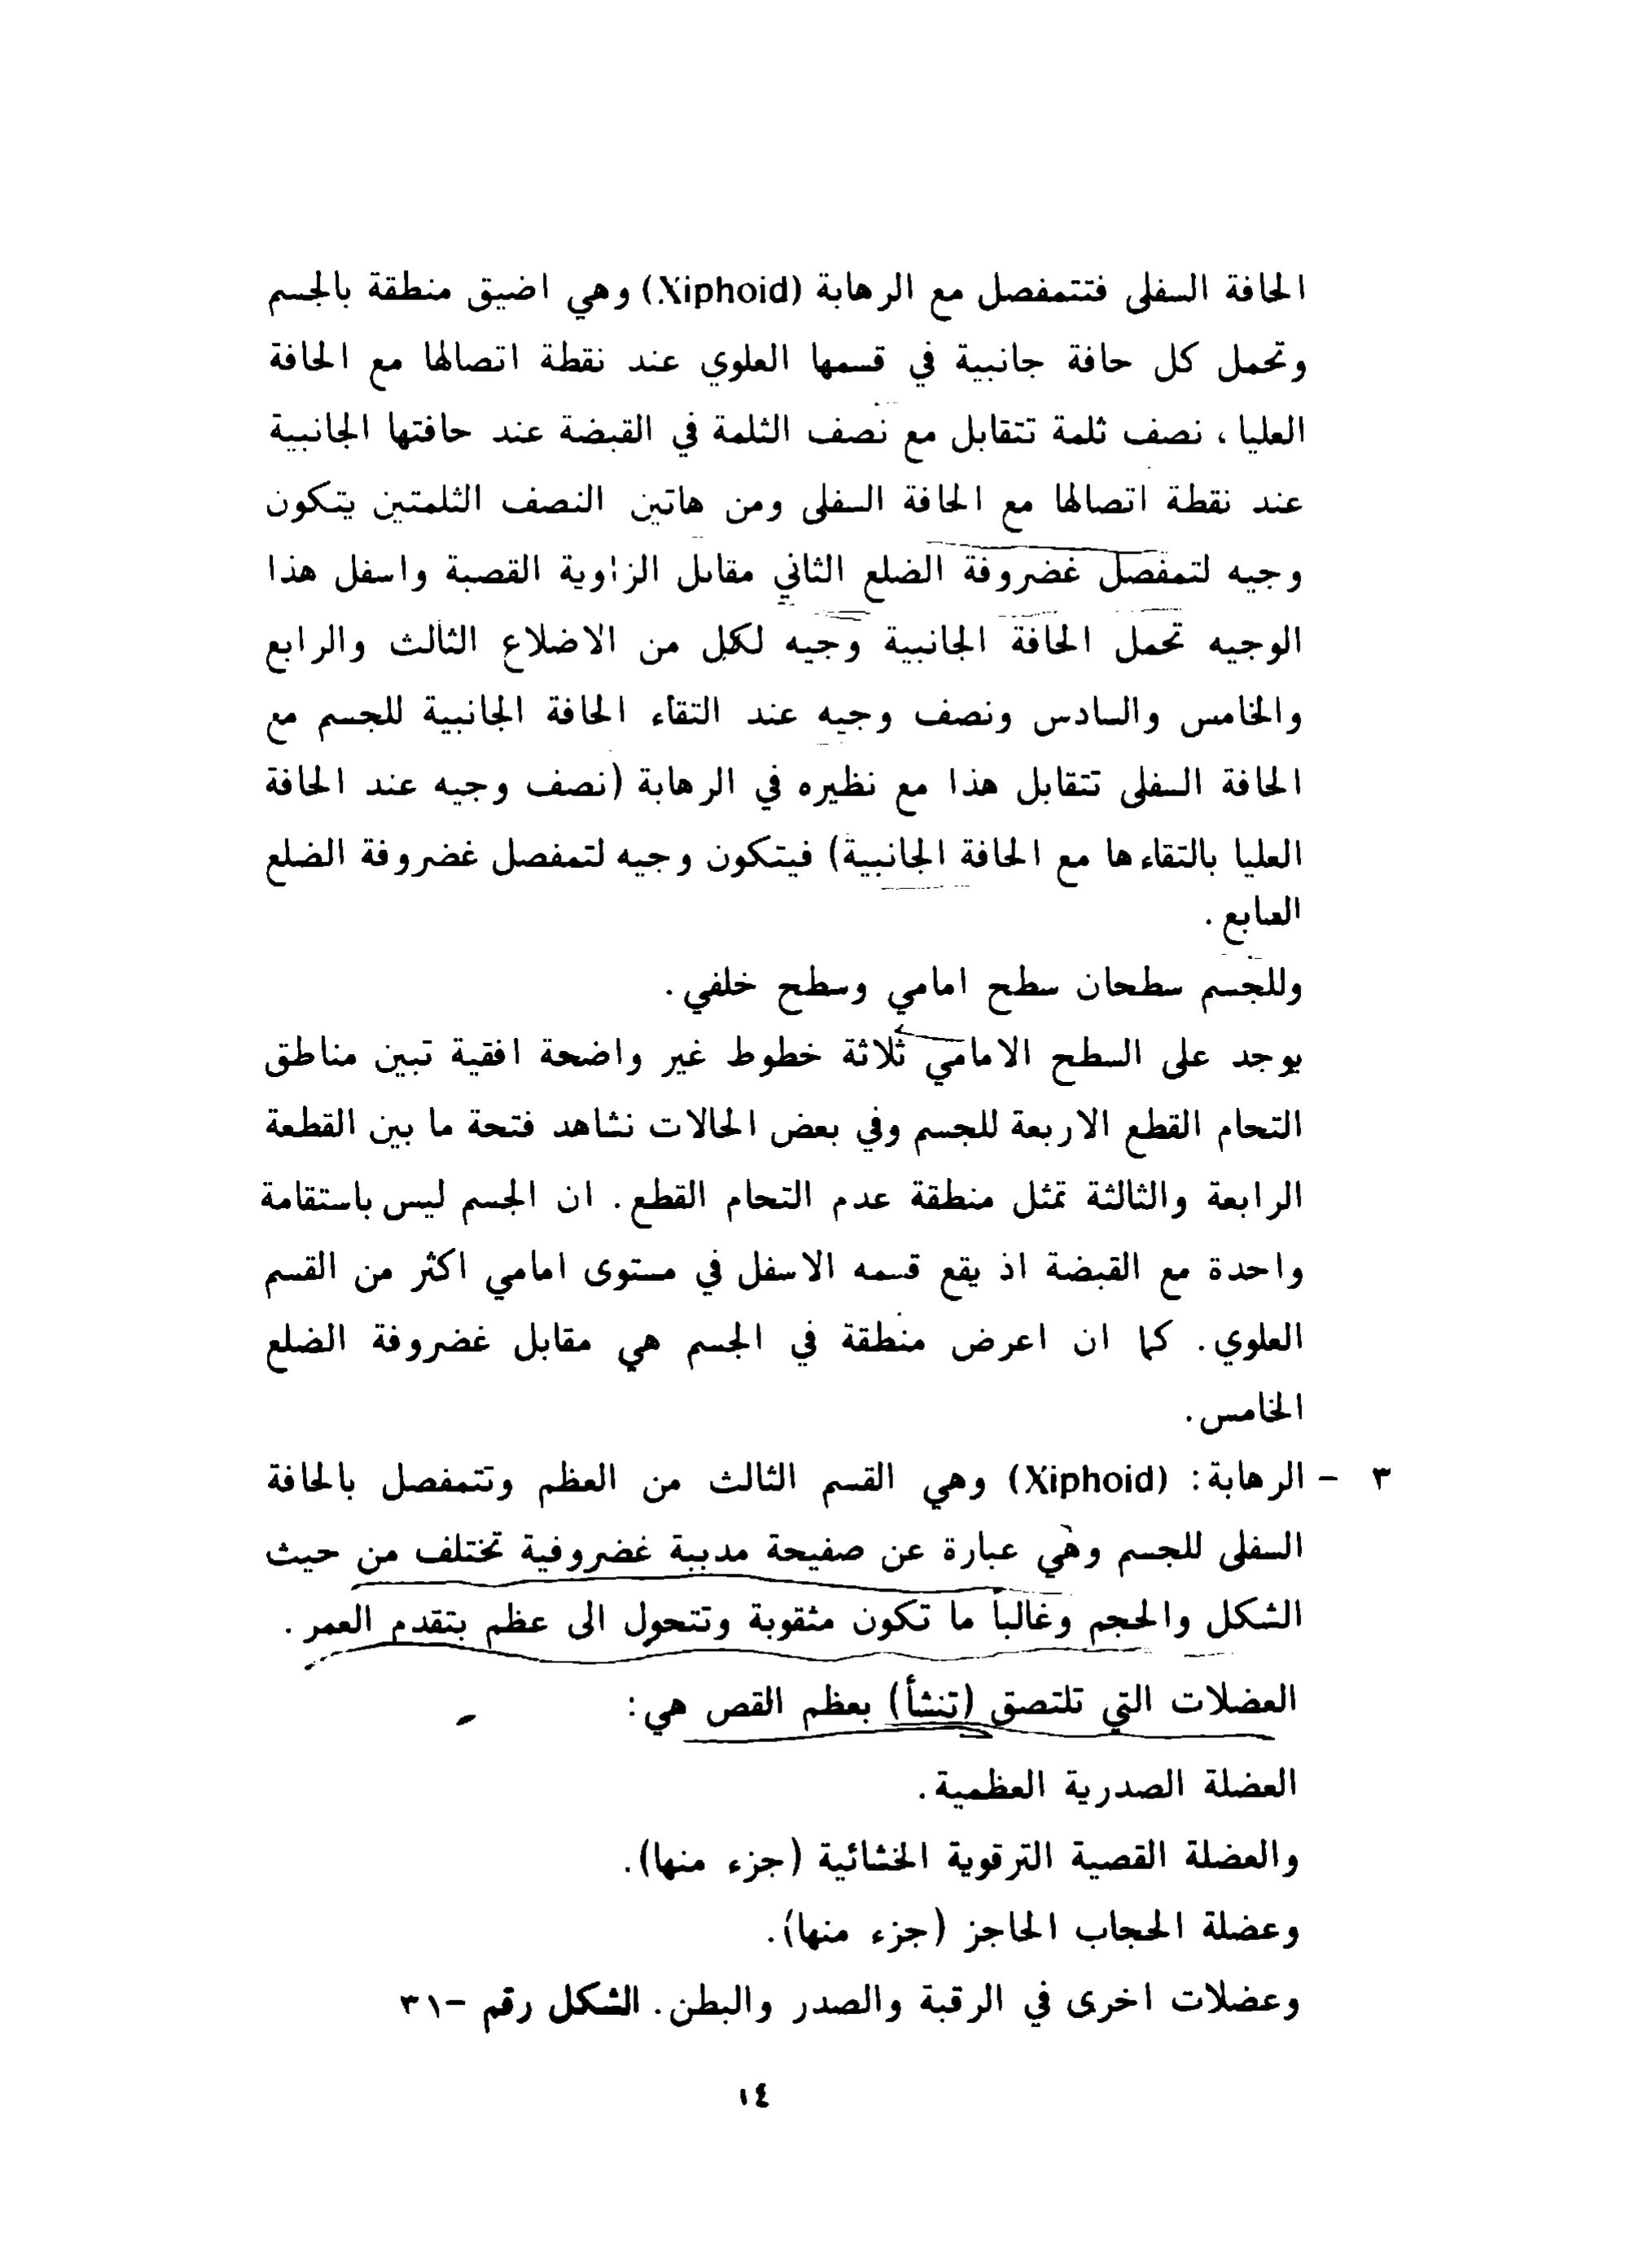 الحافة السفلى فتتمفصل مع الرهابة (Xiphoid) وهي اضيق منطقة بالجسم
وتحمل كل حافة جانبية في قسمها العلوي عند نقطة اتصالها مع الحافة
العليا، نصف ثلمة تتقابل مع نصف الثلمة في القبضة عند حافتها الجانبية
عند نقطة اتصالها مع الحافة السفلى ومن هاتين النصف الثلمتين يتكون
وجيه لتمفصل غضروفة الضلع الثاني مقابل الزاوية القصبة واسفل هذا
الوجيه تحمل الحافة الجانبية وجيه لكل من الاضلاع الثالث والرابع
والخامس والسادس ونصف وجيه عند التقاء الحافة الجانبية للجسم مع
الحافة السفلى تتقابل هذا مع نظيره في الرهابة (نصف وجيه عند الحافة
العليا بالتقاءها مع الحافة الجانبية) فيتكون وجيه لتمفصل غضروفة الضلع
السابع.
وللجسم سطحان سطح امامي وسطح خلفي.
يوجد على السطح الامامي ثلاثة خطوط غير واضحة افقية تبين مناطق
التحام القطع الاربعة للجسم وفي بعض الحالات نشاهد فتحة ما بين القطعة
الرابعة والثالثة تمثل منطقة عدم التحام القطع. ان الجسم ليس باستقامة
واحدة مع القبضة اذ يقع قسمه الاسفل في مستوى امامي اكثر من القسم
العلوي. كما ان اعرض منطقة في الجسم هي مقابل غضروفة الضلع
الخامس.
٣ - الرهابة: (Xiphoid) وهي القسم الثالث من العظم وتتمفصل بالحافة
السفلى للجسم وهي عبارة عن صفيحة مدببة غضروفية تختلف من حيث
الشكل والحجم وغالباً ما تكون مثقوبة وتتحول الى عظم بتقدم العمر.
العضلات التي تلتصق (تنشأ) بعظم القص هي:
العضلة الصدرية العظمية.
والعضلة القصية الترقوية الخشائية (جزء منها).
وعضلة الحجاب الحاجز (جزء منها).
وعضلات اخرى في الرقبة والصدر والبطن. الشكل رقم -٣١
١٤